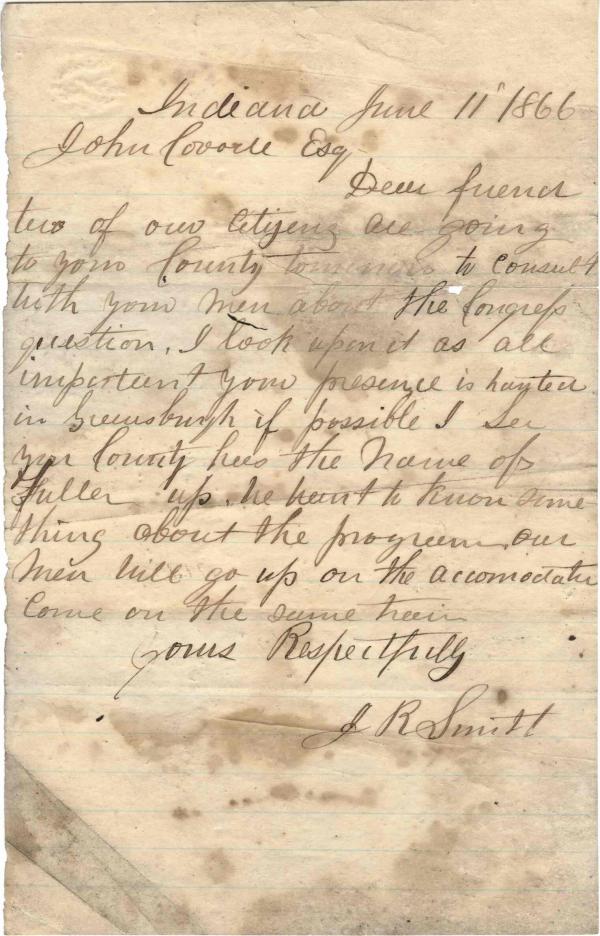 Indiana June 11 1866
John Covode Esq
Dear friend
two of our Citizens are going
to your County tomorrow to consult
with your men about the Congress
question, I look upon it as all
important your presence is wanted
in Greensburgh if possible I See
your County has the Name of
Fuller up. we want to know some
thing about the program our
men will go up on the accomodation
Come on the same train
yours Respectfully
J R Smith